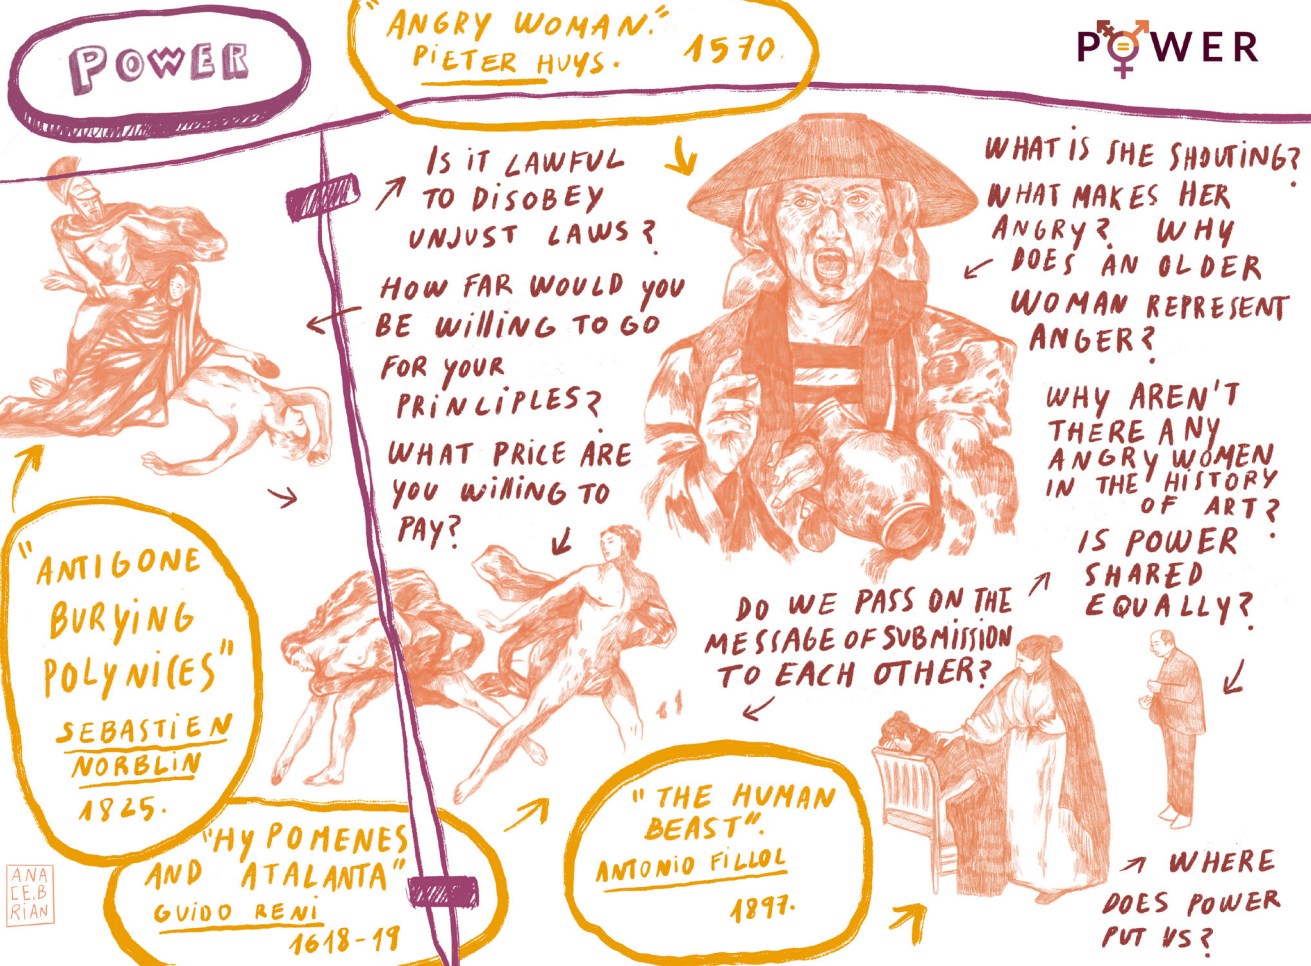 POWER
"ANGRY WOMAN."
PIETER HUYS. 1570.
POWER
IS IT LAWFUL
TO DISOBEY
UNJUST LAWS?
HOW FAR WOULD YOU
BE WILLING TO GO
FOR YOUR
PRINCIPLES?
WHAT PRICE ARE
YOU WILLING TO
PAY?
WHAT IS SHE SHOUTING?
WHAT MAKES HER
ANGRY? WHY
DOES AN OLDER
WOMAN REPRESENT
ANGER?
WHY AREN'T
THERE ANY
ANGRY WOMEN
IN THE HISTORY
OF ART?
IS POWER
SHARED
EQUALLY?
DO WE PASS ON THE
MESSAGE OF SUBMISSION
TO EACH OTHER?
"ANTIGONE
BURYING
POLYNICES"
SEBASTIEN
NORBLIN
1825.
"HYPOMENES
AND ATALANTA"
GUIDO RENI
1618-19
"THE HUMAN
BEAST".
ANTONIO FILLOL
1897.
WHERE
DOES POWER
PUT US?
ANA
CEB
RIAN